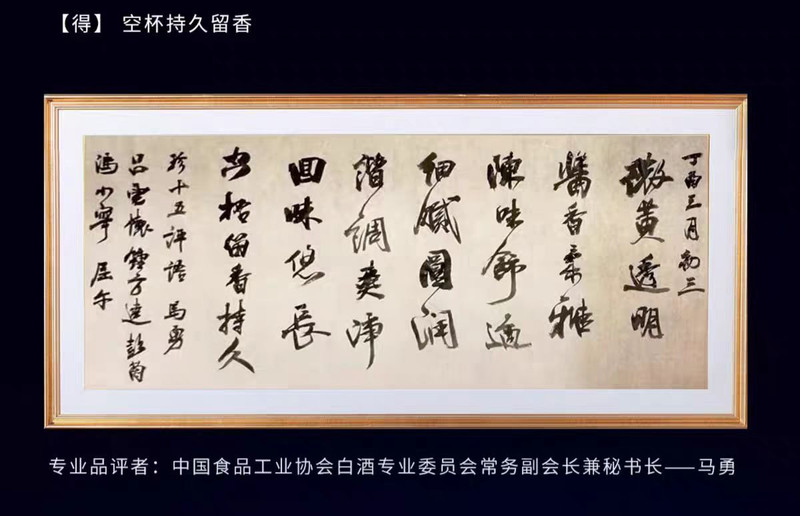 【得】 空杯持久留香
丁酉三月初三
微黄透明
酱香柔雅
陈味舒适
细腻圆润
谐调爽净
回味悠长
空杯留香持久
珍十五评语 马勇
吕云怀 钟方达 彭茵
冯小宁 屈午
专业品评者：中国食品工业协会白酒专业委员会常务副会长兼秘书长——马勇